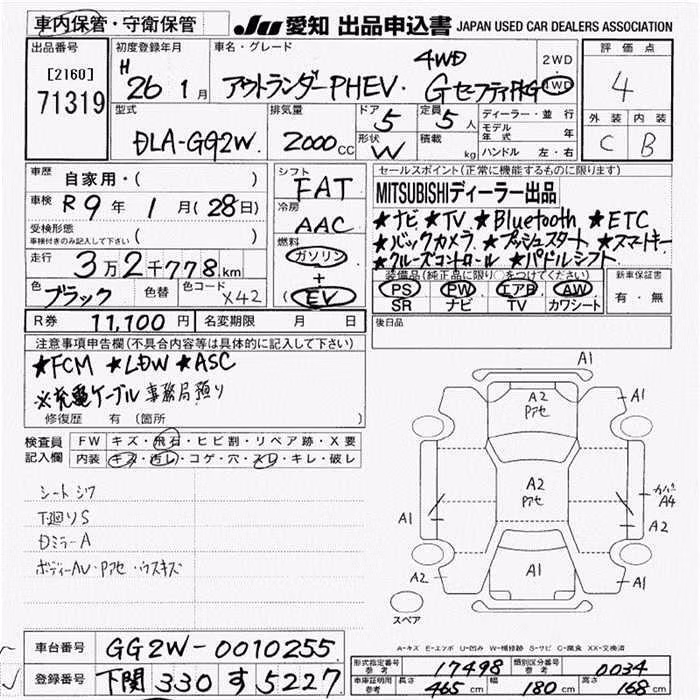 車内保管・守衛保管
JU 愛知 出品申込書 JAPAN USED CAR DEALERS ASSOCIATION
出品番号
[2160]
71319
初度登録年月
H 26 1月
車名・グレード
4WD
アウトランダーPHEV. Gセーフティ
2WD
4WD
評価点
4
外装 内装
C B
型式
DLA-GG2W.
排気量
2000 CC
ドア 5
形状 W
定員 5 人
積載 kg
ディーラー・並行
モデル年式 年
ハンドル 左・右
車歴 自家用・( )
車検 R9年 1月(28日)
受検形態
車検付きのみ記入して下さい ( )
走行 3万2千778km
色 ブラック 色替 色コード X42
R券 11,100円 名変期限 月 日
シフト
FAT
冷房
AAC
燃料
ガソリン
+
(EV)
セールスポイント(正常に機能するものに限ります)
MITSUBISHIディーラー出品
★ナビ ★TV ★Bluetooth ★ETC
★バックカメラ ★プッシュスタート ★スマートキー
★クルーズコントロール ★パドルシフト
装備品(純正品に限り○をつけてください)
PS PW エアB AW
SR ナビ TV カワシート
新車保証書
有・無
後日品
注意事項申告欄(不具合内容等は具体的に記入して下さい)
★FCM ★LDW ★ASC
※充電ケーブル事務局預り
修復歴 有(箇所 )
検査員記入欄
FW キズ・飛石・ヒビ割・リペア跡・X要
内装 キズ・汚レ・コゲ・穴・スレ・キレ・破レ
シートシワ
下廻りS
DミラーA
ボディーAU・Pアセ・ウスキズ
A1
A2
Pアセ
A1
A2
Pアセ
カバー
A4
A1
A2
A2
A1
A1
スペア
A-キズ E-エクボ U-凹み W-補修跡 S-サビ C-腐食 XX-交換済
車台番号 GG2W-0010255
登録番号 下関 330 す 5227
形式指定番号 参考 17498 類別区分番号 参考 0034
車庫証明用 参考 長さ 465cm 幅 180cm 高さ 168cm